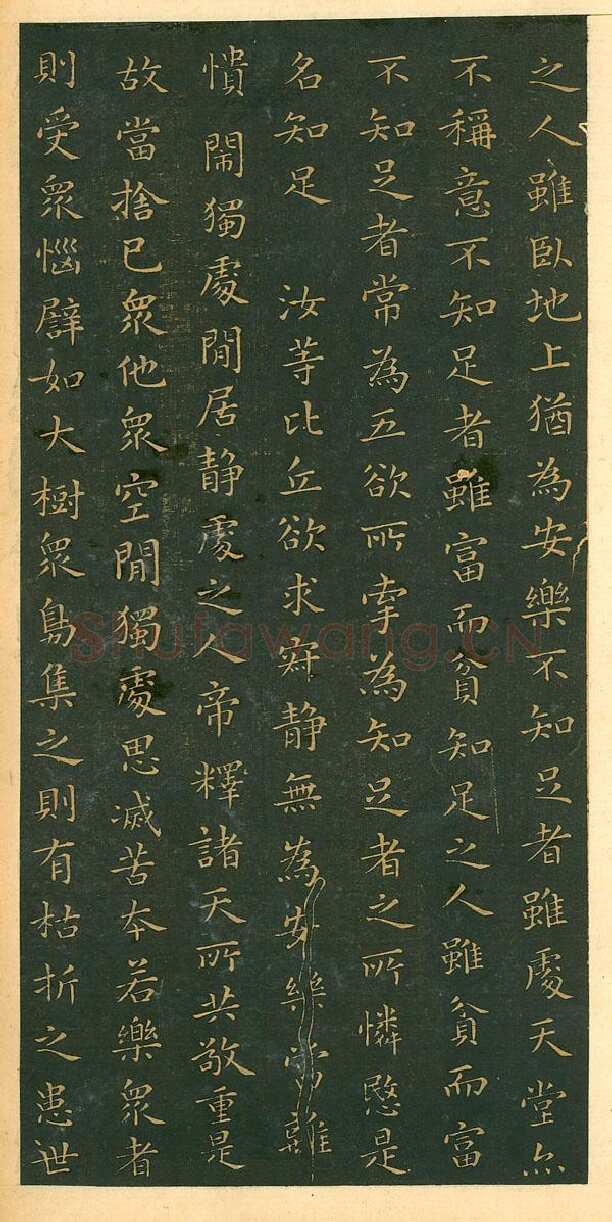 之人雖臥地上猶為安樂不知足者雖處天堂亦
不稱意不知足者雖富而貧知足之人雖貧而富
不知足者常為五欲所牽為知足者之所憐愍是
名知足 汝等比丘欲求寂靜無為安樂當離
憒閙獨處閒居静處之人帝釋諸天所共敬重是
故當捨已衆他衆空閒獨處思滅苦本若樂衆者
則受衆惱譬如大樹衆鳥集之則有枯折之患世
Shufawang.CN